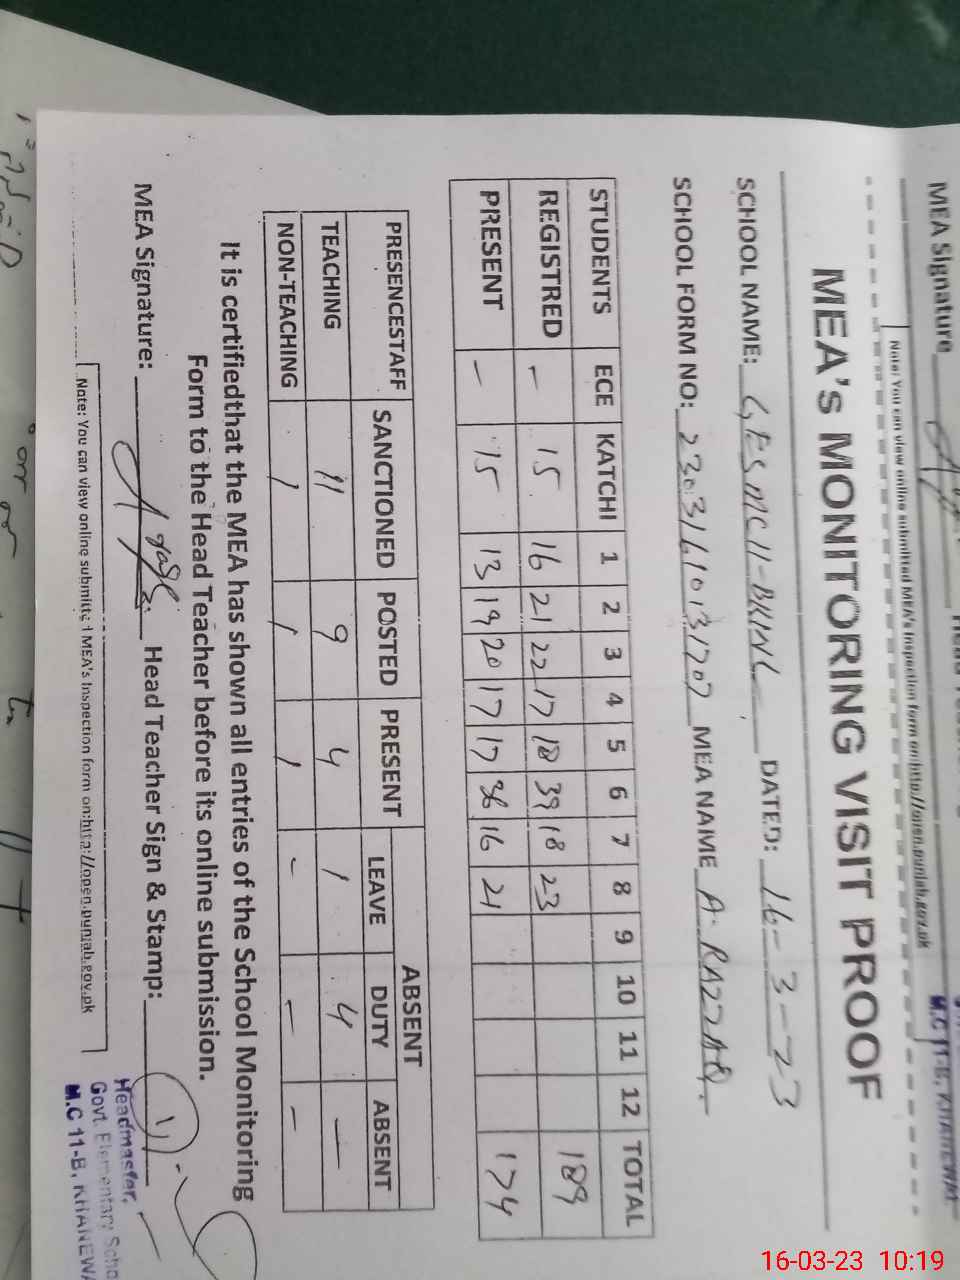 MEA Signature
Note: You can view online submitted MEA's Inspection form on:http://open.punjab.gov.pk
M.C 11-B, KHANEWAL
MEA's MONITORING VISIT PROOF
SCHOOL NAME: GES MC 11-B KWL DATED: 16-3-23
SCHOOL FORM NO: MEA NAME A. RAZZAQ.
STUDENTS ECE KATCHI 1 2 3 4 5 6 7 8 9 10 11 12 TOTAL
REGISTRED - 15 16 21 22 17 18 39 18 23 189
PRESENT - 15 13 19 20 17 17 36 16 21 174
PRESENCESTAFF SANCTIONED POSTED PRESENT ABSENT
LEAVE DUTY ABSENT
TEACHING 11 9 4 1 4 -
NON-TEACHING 1 1 1 - - -
It is certifiedthat the MEA has shown all entries of the School Monitoring
Form to the Head Teacher before its online submission.
MEA Signature: Head Teacher Sign & Stamp:
Headmaster,
Govt. Elementary Scho
M.C 11-B, KHANEWA
Note: You can view online submitted MEA's Inspection form on:http://open.punjab.gov.pk
16-03-23 10:19